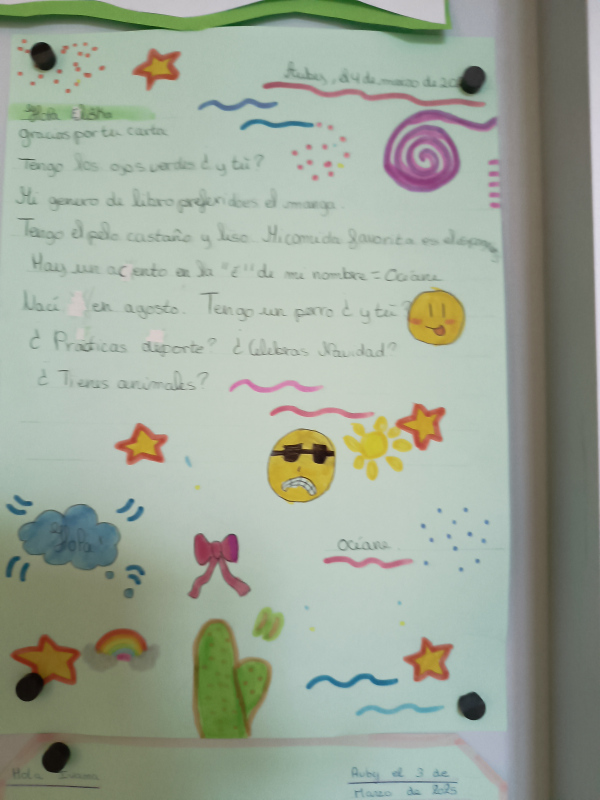 Auby, el 4 de marzo de 20
Hola
gracias por tu carta
Tengo los ojos verdes ¿ y tú ?
Mi genero de libro preferido es el manga.
Tengo el pelo castaño y liso. Mi comida favorita es el
Hay un acento en la "E" de mi nombre = Océane
Nací en agosto. Tengo un perro ¿ y tú ?
¿ Prácticas deporte? ¿ Celebras Navidad?
¿ Tienes animales?
Hola!
Océane
Hola
Auby el 3 de
Marzo de 2025